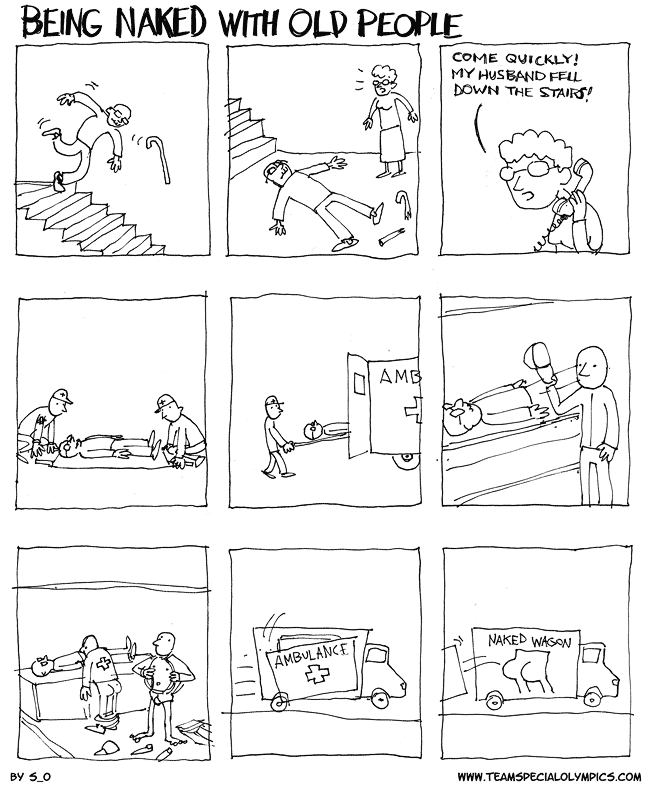 BEING NAKED WITH OLD PEOPLE
COME QUICKLY!
MY HUSBAND FELL
DOWN THE STAIRS!
AMB
AMBULANCE
NAKED WAGON
BY S_O
WWW.TEAMSPECIALOLYMPICS.COM